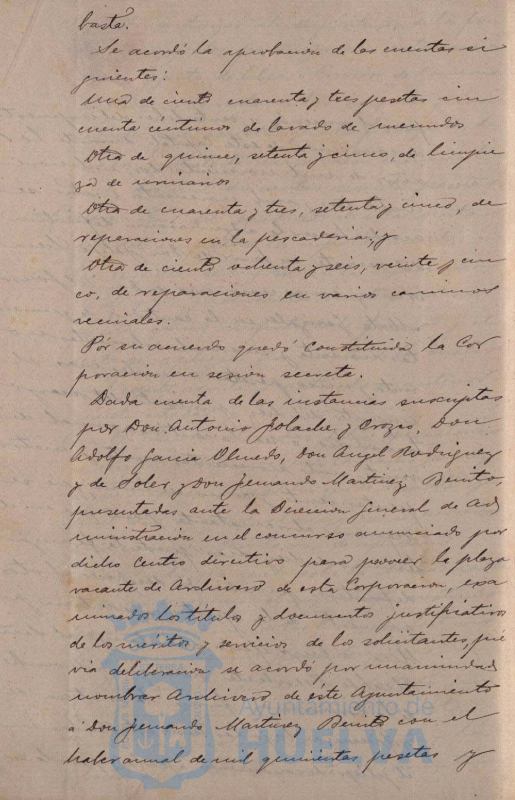 basta.
Se acordó la aprobacion de las cuentas si
guientes:
Una de ciento cuarenta y tres pesetas cin
cuenta céntimos de lavado de menudos
Otra de quince, setenta y cinco, de limpie
za de urinarios
Otra de cuarenta y tres, setenta y cinco, de
reparaciones en la pescaderia; y
Otra de ciento ochenta y seis, veinte y cin
co, de reparaciones en varios caminos
vecinales.
Por su acuerdo quedó constituida la Cor
poracion en sesion secreta.
Dada cuenta de las instancias suscriptas
por Don Antonio y Orozco, Don
Adolfo Garcia Olmedo, Don Angel Rodriguez
y de Soler y Don Fernando Martinez Benito,
presentadas ante la Direccion General de Ad
ministracion en el concurso anunciado por
dicho centro directivo para proveer la plaza
vacante de Archivero de esta Corporacion, exa
minados los titulos y documentos justificativos
de los méritos y servicios de los solicitantes, pré
via deliberacion se acordó por unanimidad
nombrar Archivero de éste Ayuntamiento
á Don Fernando Martinez Benito con el
haber anual de mil quinientas pesetas y
Ayuntamiento de
HUELVA